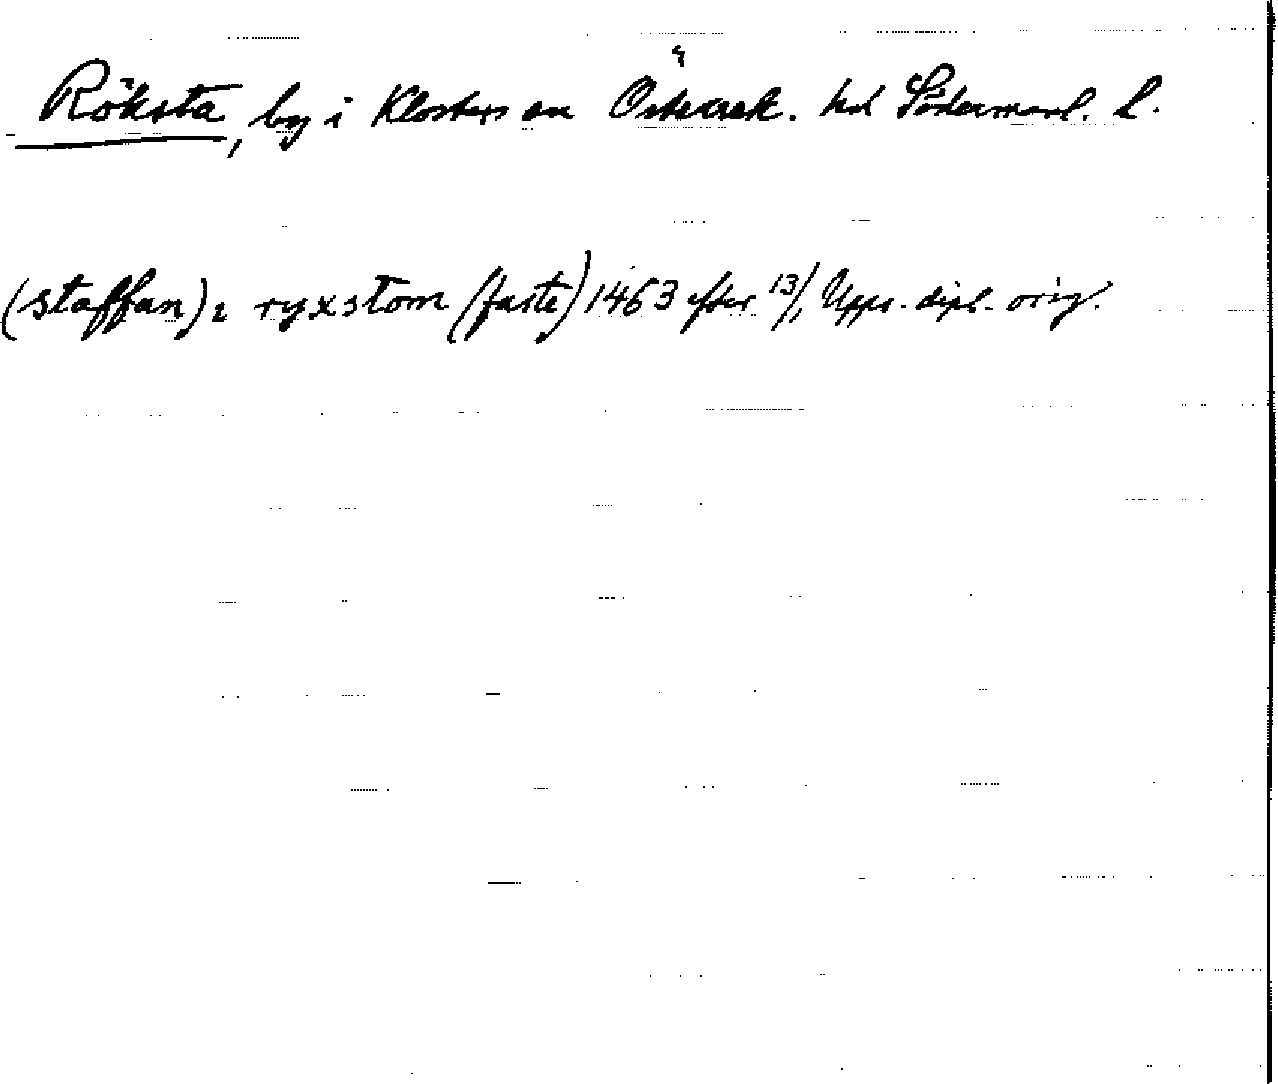 Röksta, by i Klosters sn Österrek. hd Södermanl. L.
(staffan) i ryxstom (faste) 1463 efter 13/1 Upps. dipl. orig.